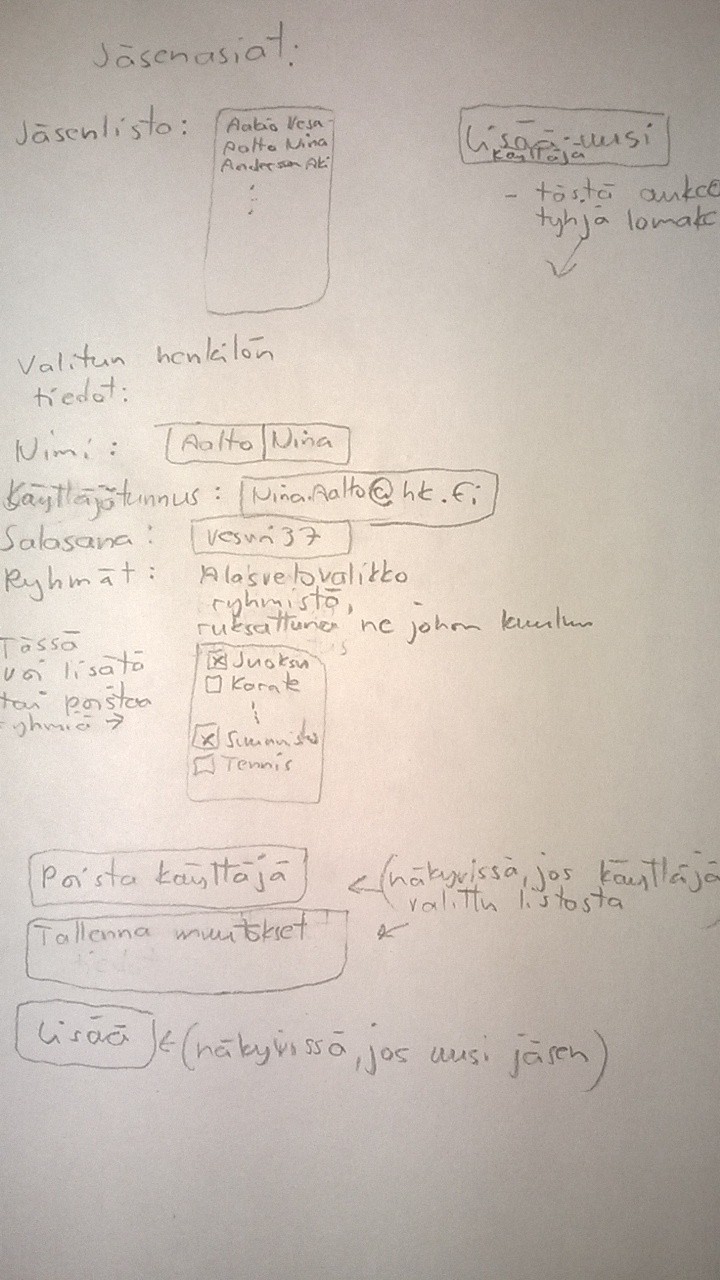 Jäsenasiat:
Jäsenlista:
Aabio Vesa
Aalto Nina
Andersson Aki
Lisää uusi
käyttäjä
- tästä aukee
tyhjä lomake
Valitun henkilön
tiedot:
Nimi: Aalto Nina
Käyttäjätunnus: Nina.Aalto@hk.fi
Salasana: vesuri37
Ryhmät: Alasvetovalikko
ryhmistä,
ruksattuna ne johon kuuluu
Tässä
voi lisätä
tai poistaa
ryhmiä →
Juoksu
Karate
Suunnistus
Tennis
Poista käyttäjä ← (näkyvissä, jos käyttäjä
valittu listasta
Tallenna muutokset ←
Lisää ← (näkyvissä, jos uusi jäsen)